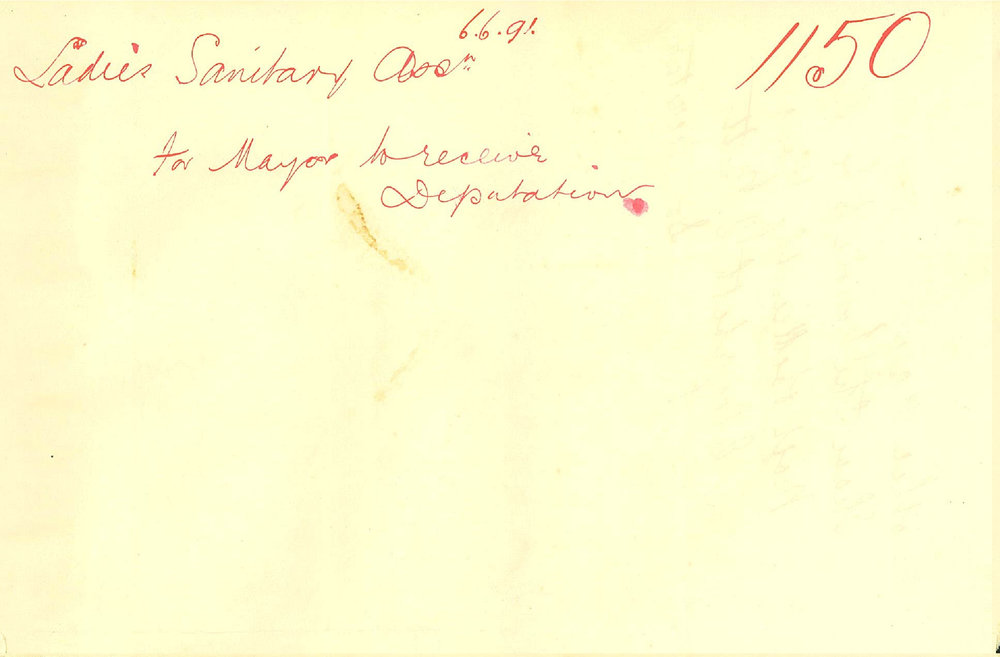 6.6.91.
Ladies Sanitary Assn 1150
for Mayor to receive
Deputation